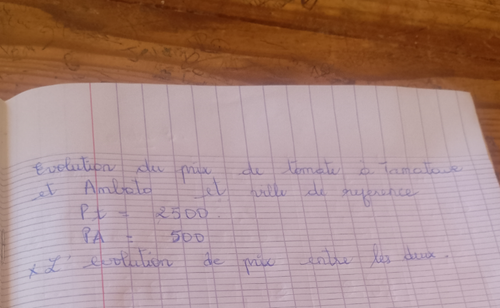 Evolution du prix de tomate à Tamatave
et Ambato et ville de reference
Pt = 2500.
PA = 500
* L' evolution de prix entre les deux.